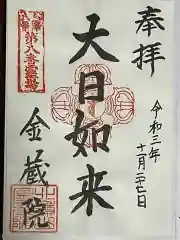 奉拝
令和三年
十一月二七日
大日如来
第八番霊場
金蔵院